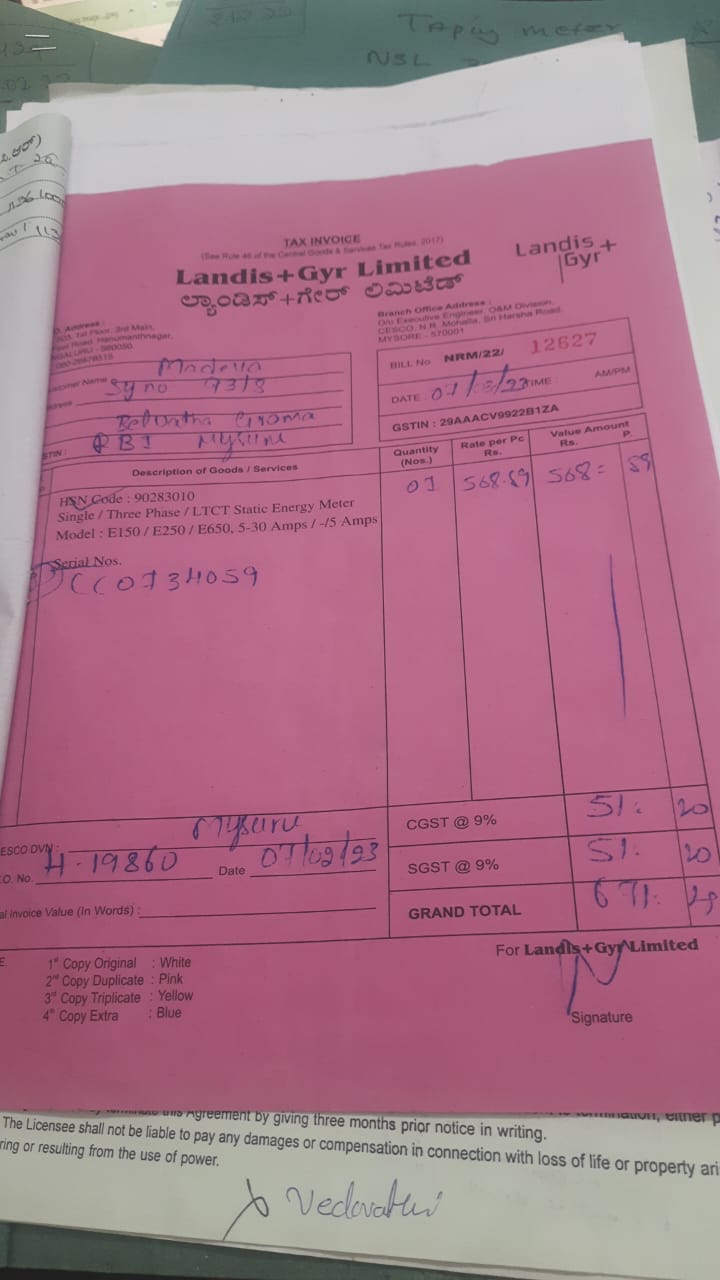 Taping meter
NSL
TAX INVOICE
(See Rule 46 of the Central Goods & Services Tax Rules, 2017)
Landis+Gyr Limited
ಲ್ಯಾಂಡಿಸ್+ಗೇರ್ ಲಿಮಿಟೆಡ್
Landis+
Gyr
Address :
1st Floor, 3rd Main,
Road, Hanumanthnagar,
Branch Office Address :
O/o Executive Engineer, O&M Division,
CESCO, N.R. Mohalla, Sri Harsha Road,
MYSORE - 570001
BILL No NRM/22/ 12627
DATE : 07/02/23 TIME : AM/PM
GSTIN : 29AAACV9922B1ZA
Customer Name Madeva
Sy no 73/8
Belvatha Grama
RBI Mysuru
Description of Goods / Services
Quantity
(Nos.)
Rate per Pc
Rs.
Value Amount
Rs. P.
HSN Code : 90283010
Single / Three Phase / LTCT Static Energy Meter
Model : E150 / E250 / E650, 5-30 Amps / -/5 Amps
01 568.89 568= 89
Serial Nos.
CC0734059
ESCO DVN : Mysuru
O. No. H-19860 Date 07/02/23
al Invoice Value (In Words) :
CGST @ 9% 51. 20
SGST @ 9% 51. 20
GRAND TOTAL 671. 29
1st Copy Original : White
2nd Copy Duplicate : Pink
3rd Copy Triplicate : Yellow
4th Copy Extra : Blue
For Landis+Gyr Limited
Signature
this Agreement by giving three months prior notice in writing.
The Licensee shall not be liable to pay any damages or compensation in connection with loss of life or property ari
ring or resulting from the use of power.
Vedavathi